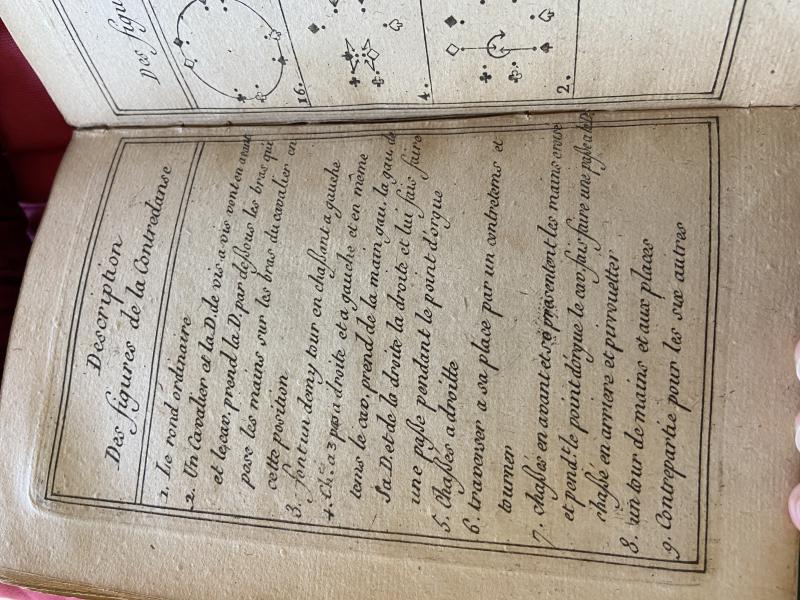 Description
Des figures de la Contredanse
1. Le rond ordinaire
2. Un Cavalier et la D. de vis a vis vont en avant
et le cav. prend la D. par dessous les bras qui
pose les mains sur les bras du cavalier en
cette position
3. font un demy tour en chassant a gauche
4. Ch. a 3 pas a droite et a gauche et en même
tems le cav. prend de la main gau. la gau. de
sa D. et de la droite la droite et lui fais faire
une passe pendant le point d'orgue
5. Chasses a droitte
6. traverser a sa place par un contretems et
tourner
7. chassés en avant et se présentent les mains
et pend.t le point d'orgue le cav. fais faire une passe a la D.
chassé en arriere et pirrouetter
8. un tour de mains et aux places
9. Contrepartie pour les six autres
Des figu
16.
4.
2.